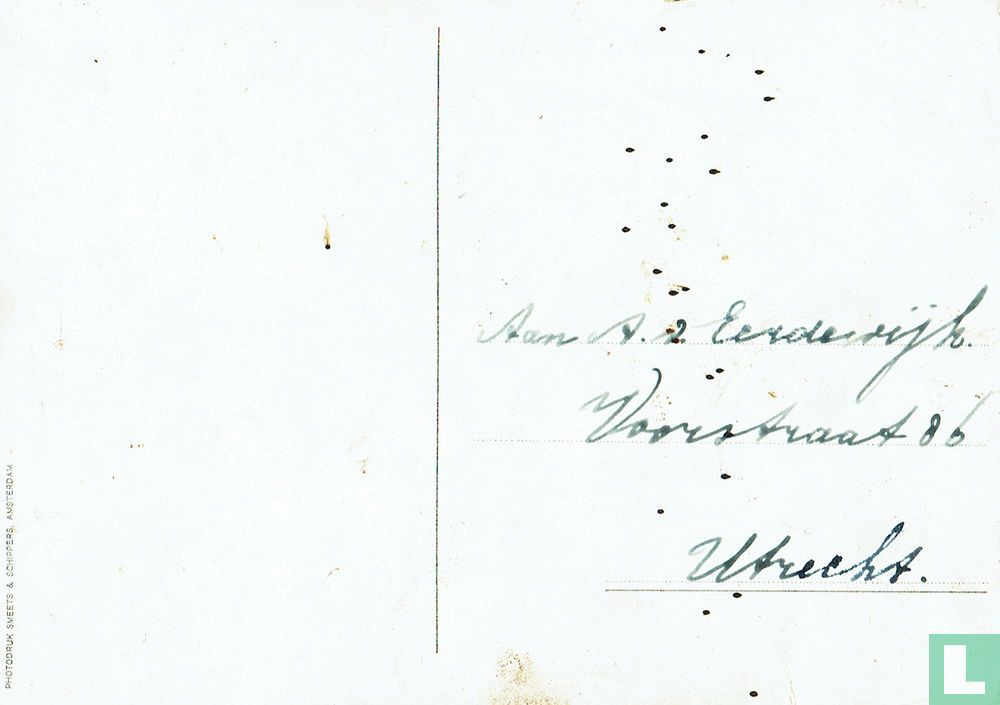 PHOTODRUK SMEETS & SCHIPPERS, AMSTERDAM
Aan A. v. Eerdewijk.
Voorstraat 86
Utrecht.
L